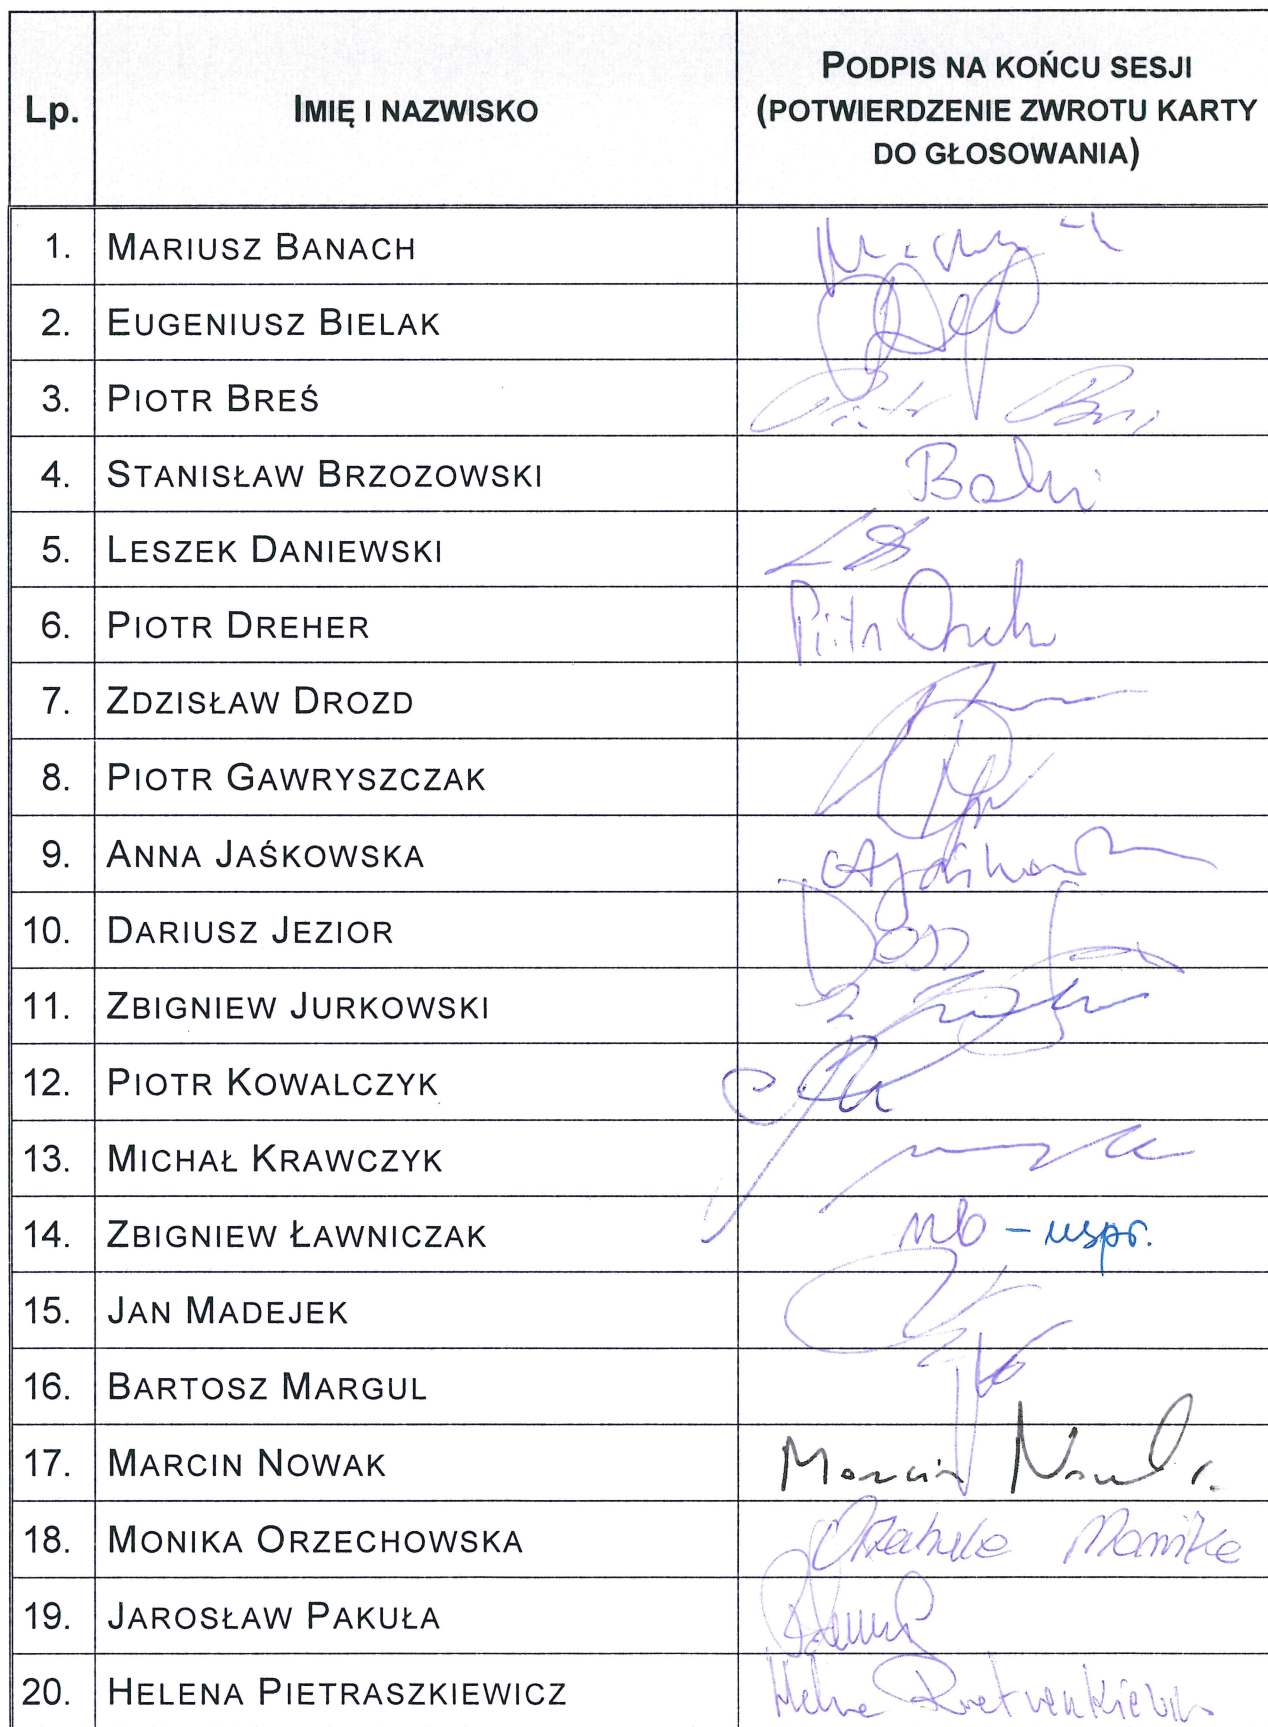 Lp. IMIĘ I NAZWISKO PODPIS NA KOŃCU SESJI
(POTWIERDZENIE ZWROTU KARTY
DO GŁOSOWANIA)
1. MARIUSZ BANACH
2. EUGENIUSZ BIELAK
3. PIOTR BREŚ Piotr
4. STANISŁAW BRZOZOWSKI
5. LESZEK DANIEWSKI
6. PIOTR DREHER Piotr
7. ZDZISŁAW DROZD
8. PIOTR GAWRYSZCZAK
9. ANNA JAŚKOWSKA
10. DARIUSZ JEZIOR
11. ZBIGNIEW JURKOWSKI
12. PIOTR KOWALCZYK
13. MICHAŁ KRAWCZYK
14. ZBIGNIEW ŁAWNICZAK nb - uspr.
15. JAN MADEJEK
16. BARTOSZ MARGUL
17. MARCIN NOWAK Marcin Nowak
18. MONIKA ORZECHOWSKA Monika
19. JAROSŁAW PAKUŁA
20. HELENA PIETRASZKIEWICZ Helena